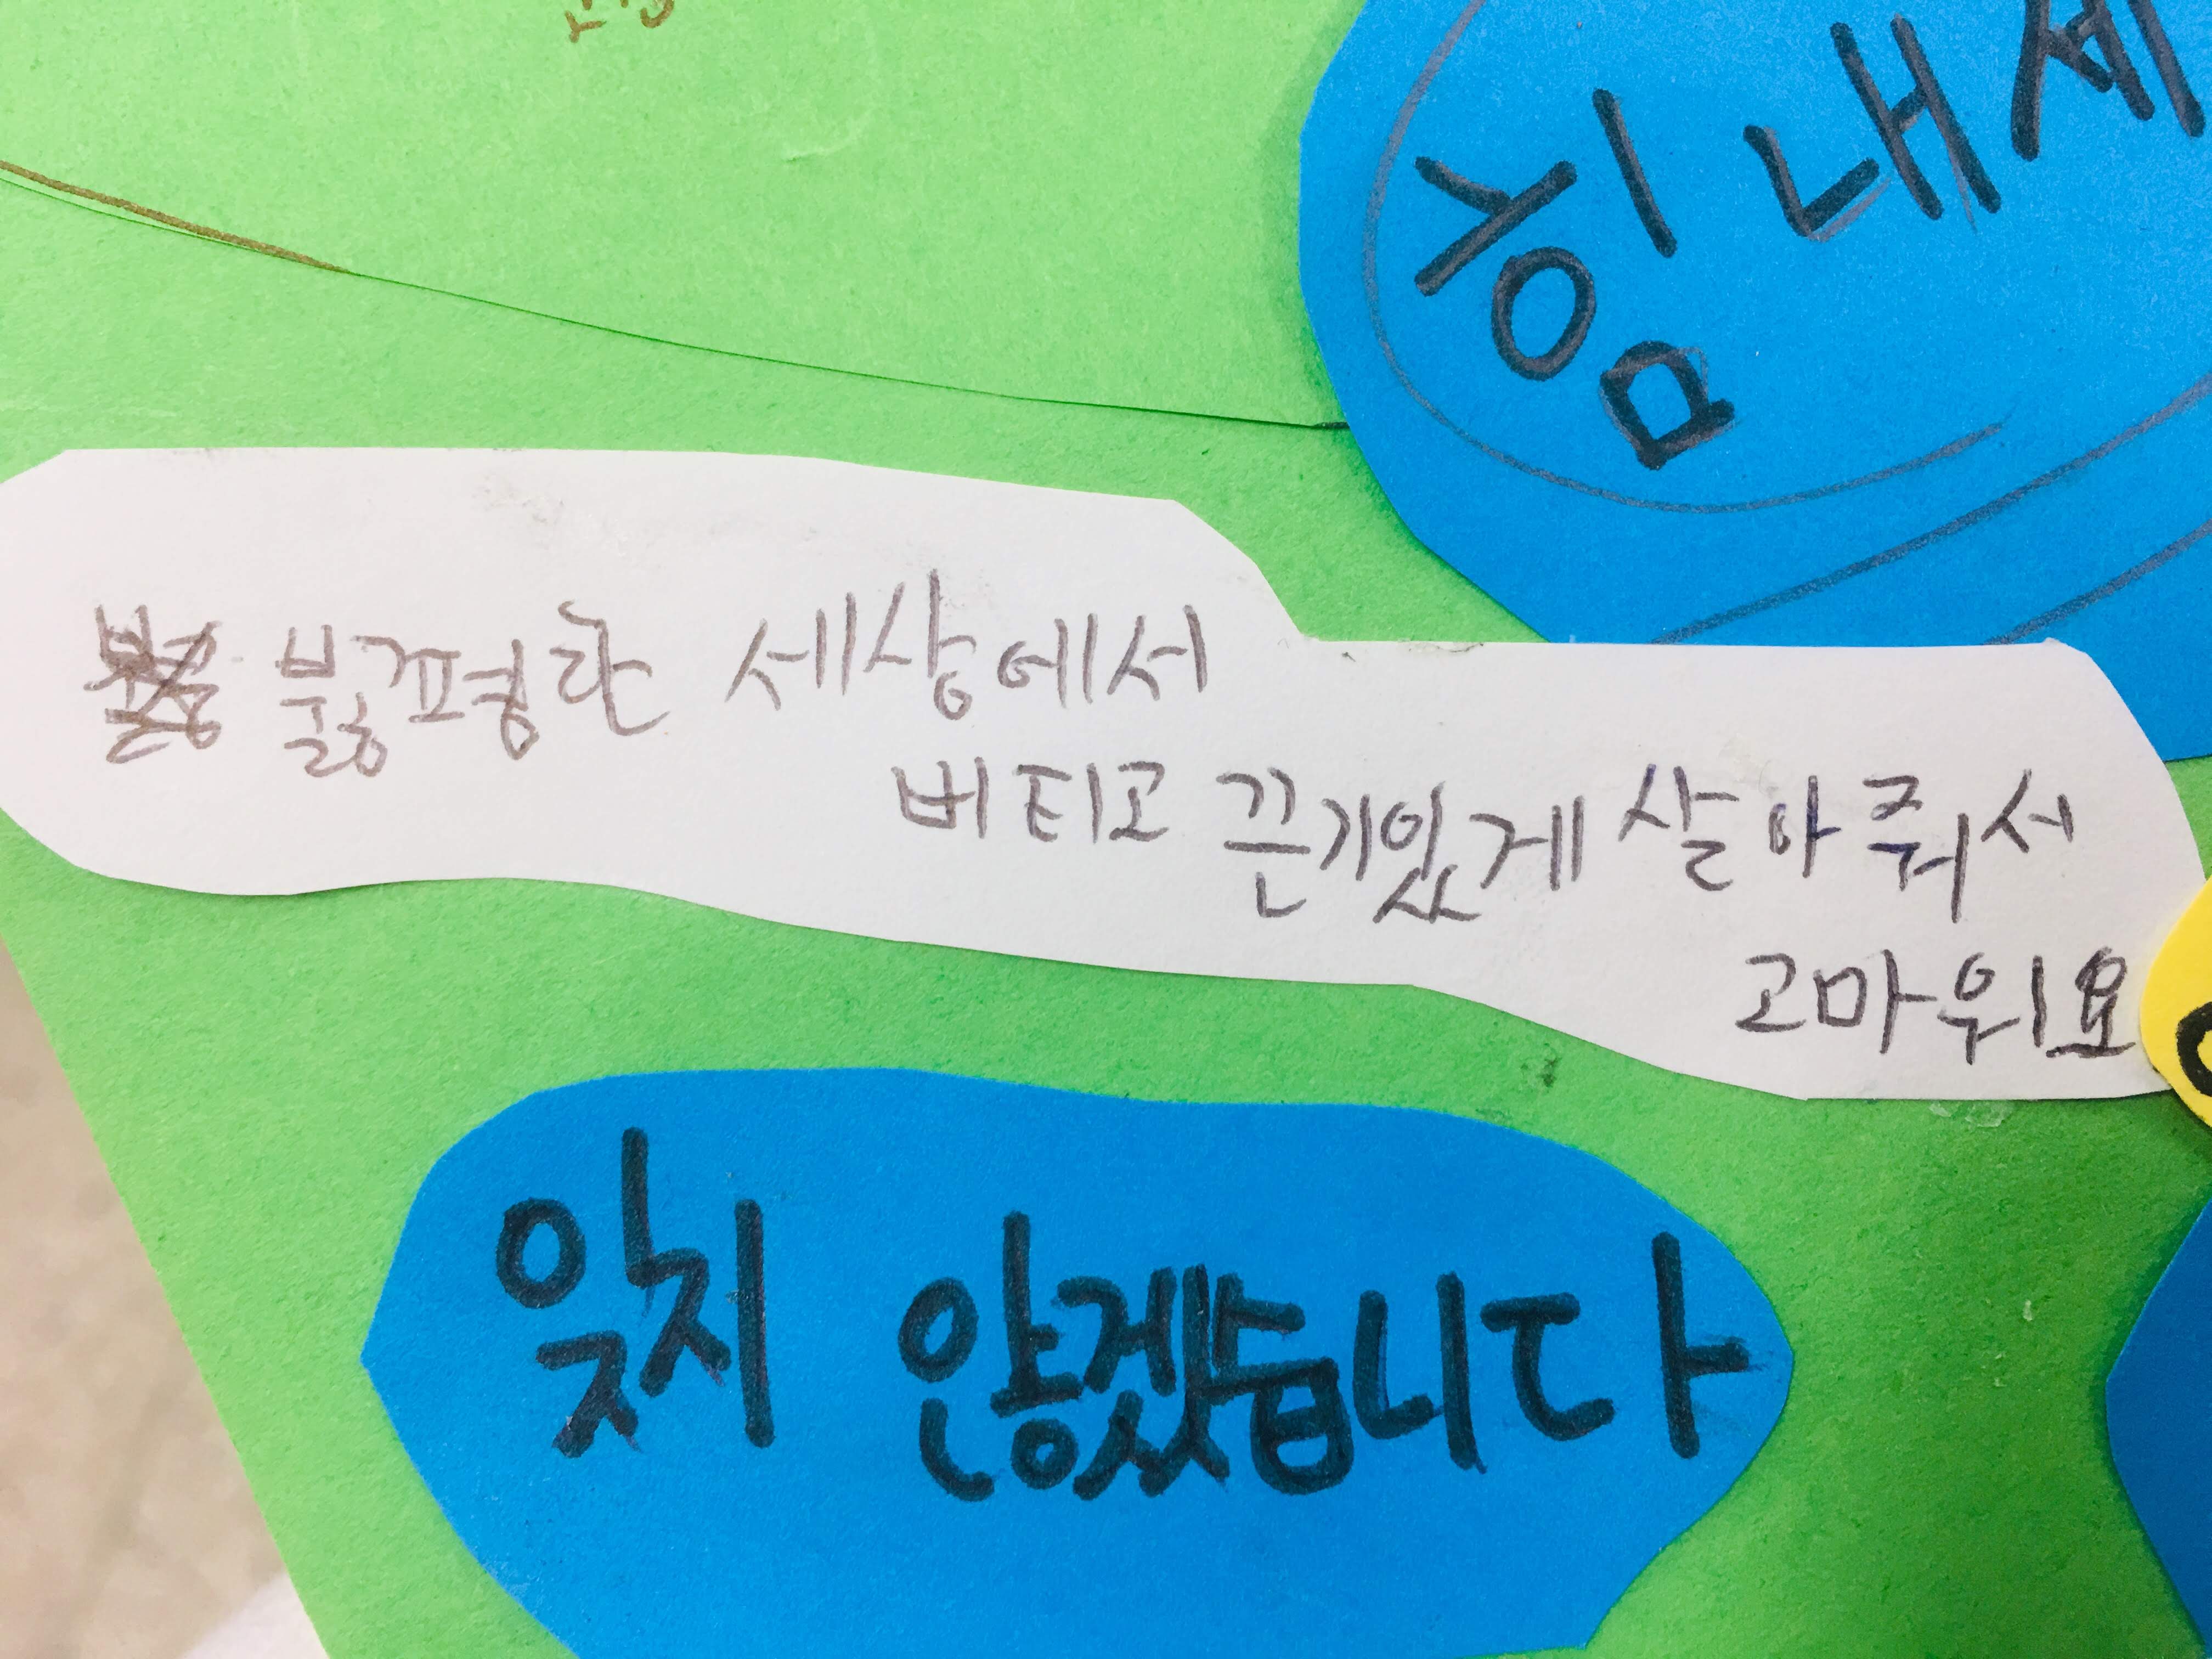 힘내세
붏평한 세상에서
버티고 끈기있게 살아줘서
고마워요
잊지 않겠습니다